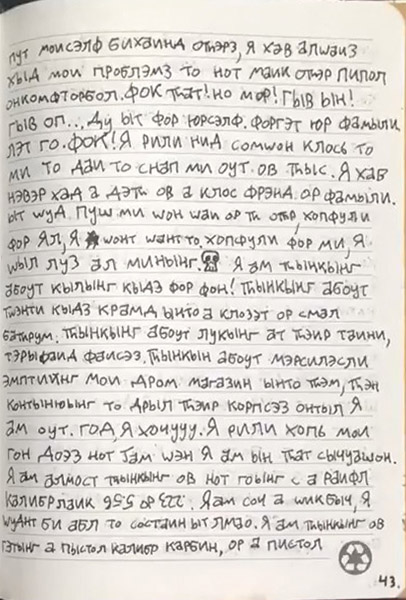 пут мойсэлф бихаинд отһэрз, Я хав алwаиз
хыд мои проблэмз то нот маик отһэр пипол
онкомфторбол. ФОК тһат! но мор! Гыв ын!
Гыв оп... Ду ыт фор юрсэлф. Форгэт юр фамыли
лэт го. ФОК! Я рили нид сомwон клось то
ми то даи то снап ми оут. ов тһыс. Я хав
нэвэр хад а дэтһ ов а клос фрэнд. ор фамыли.
ыт wуд. Пуш ми wон wаи ор тһ отһр, хопфули
фор Ял, Я wонт wант то, хопфули фор ми, Я
wыл луз ал минынг. Я ам тһынкынг
абоут кылынг кыдз фор фон! тһынкынг абоут
тwэнти кыдз крамд ынто а клозэт ор смал
батирум. тһынкынг абоут лукынг ат тһэир таини,
тэрыфаид фаисэз. тһынкын абоут мэрсилэсли
эмптийнг мои дром магазин ынто тһэм, тһэн
контынюынг то дрыл тһэир корпсэз онтыл Я
ам оут. ГОД, Я хочууу. Я рили хопь мои
гон доэз нот jам wэн Я ам ын тһат сычуаwон.
Я ам алмост тһынкынг ов нот гоынг с а раифл
калибр лаик .223 ор 5.56. Я ам соч а wикбыч, Я
wуднт би абл то состаин ыт лмао. Я ам тһынкынг ов
гэтынг а пыстол калибр карбин, ор а пистол
43.